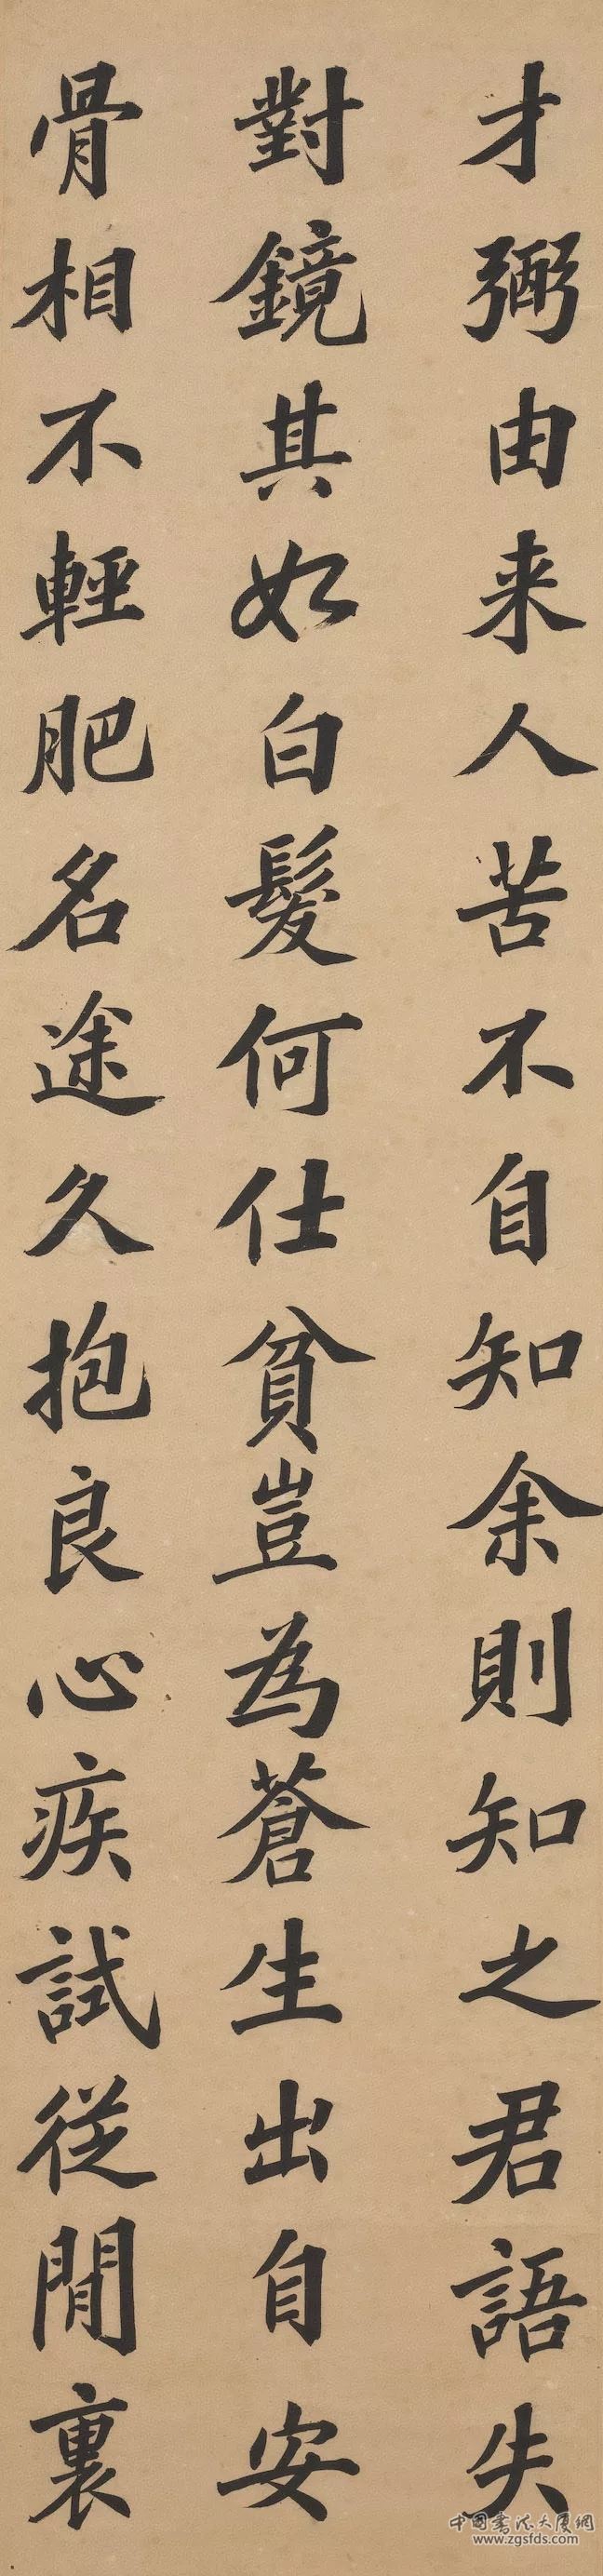 才弼由来人苦不自知余則知之君語失
對鏡其如白髮何仕貧豈為蒼生出自安
骨相不輕肥名途久抱良心疾試從閒裏
中国书法大厦網
www.zgsfds.com